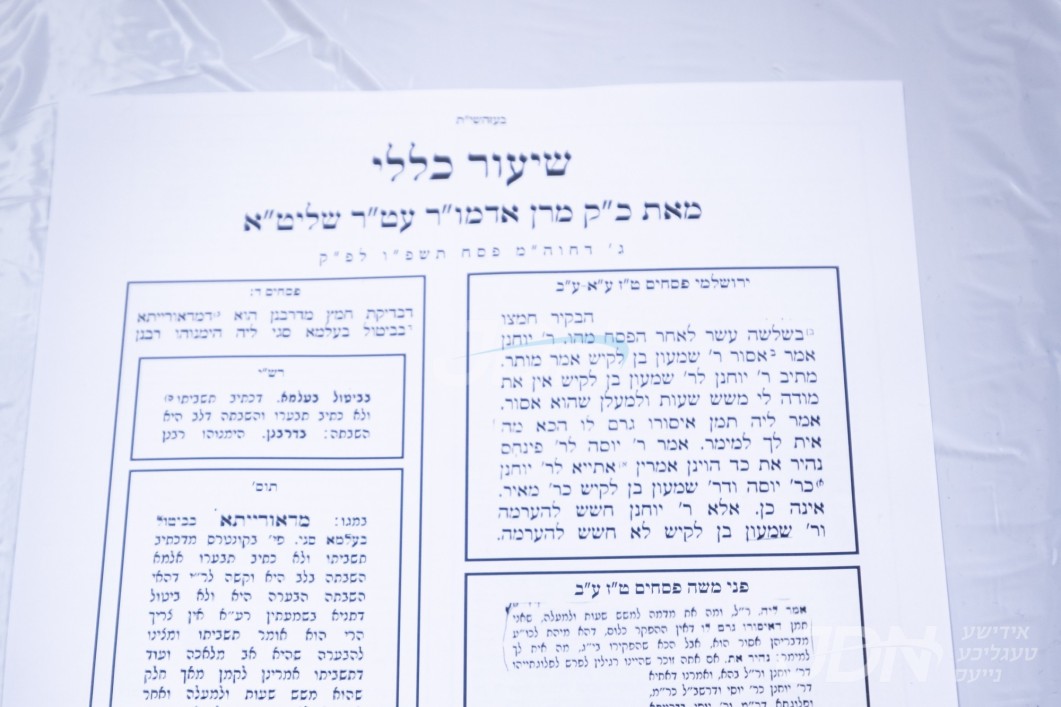 בעזהשי"ת
שיעור כללי
מאת כ"ק מרן אדמו"ר עט"ר שליט"א
ג' דחוה"מ פסח תשפ"ו לפ"ק
ירושלמי פסחים ט"ז ע"א-ע"ב
הבקיר חמצו
בשלשה עשר לאחר הפסח מהו. ר' יוחנן
אמר אסור ר' שמעון בן לקיש אמר מותר.
מתיב ר' יוחנן לר' שמעון בן לקיש אין את
מודה לי משש שעות ולמעלן שהוא אסור.
אמר ליה תמן איסורו גרם לו הכא מה
אית לך למימר. אמר ר' יוסה לר' פינחס
נהיר את כד הוינן אמרין אתייא לר' יוחנן
כר' יוסה ודר' שמעון בן לקיש כר' מאיר.
אינה כן. אלא ר' יוחנן חשש להערמה
ור' שמעון בן לקיש לא חשש להערמה.
פני משה פסחים ט"ז ע"ב
אמר ליה. ר"ל, ומה את מדמה למשש שעות ולמעלה, שאני
תמן דאיסורו גרם לו דאין ההפקר כלום, דהא מיהת לכו"ע
מדבריהן אסור הוא, אבל הכא שהפקירו בי"ג, מה אית לך
למימר: נהיר את. אם אתה זכר שהיינו רגילין לפרש לפלוגתייהו
דר' יוחנן ור"ל בהא, ואמרנו דאתיא
דר' יוחנן כר' יוסי ודרשב"ל כר"מ,
פסחים ד:
דבדיקת חמץ מדרבנן הוא דמדאורייתא
בביטול בעלמא סגי ליה הימנוהו רבנן
רש"י
בביטול בעלמא. דכתיב תשביתו
ולא כתיב תבערו והשבתה דלב היא
השבתה: בדרבנן. הימנוהו רבנן
תוס'
במגו: מדאורייתא בביטול
בעלמא סגי. פי' בקונטרס מדכתיב
תשביתו ולא כתיב תבערו אלמא
השבתה בלב היא וקשה לר"י דהאי
השבתה הבערה היא ולא ביטול
דתניא בשמעתין רע"א אין צריך
הרי הוא אומר תשביתו ומצינו
להבערה שהיא אב מלאכה ועוד
דתשביתו אמרינן לקמן מאך חלק
שהוא משש שעות ולמעלה ואחר
JDN
אידישע
טעגליכע
נייעס